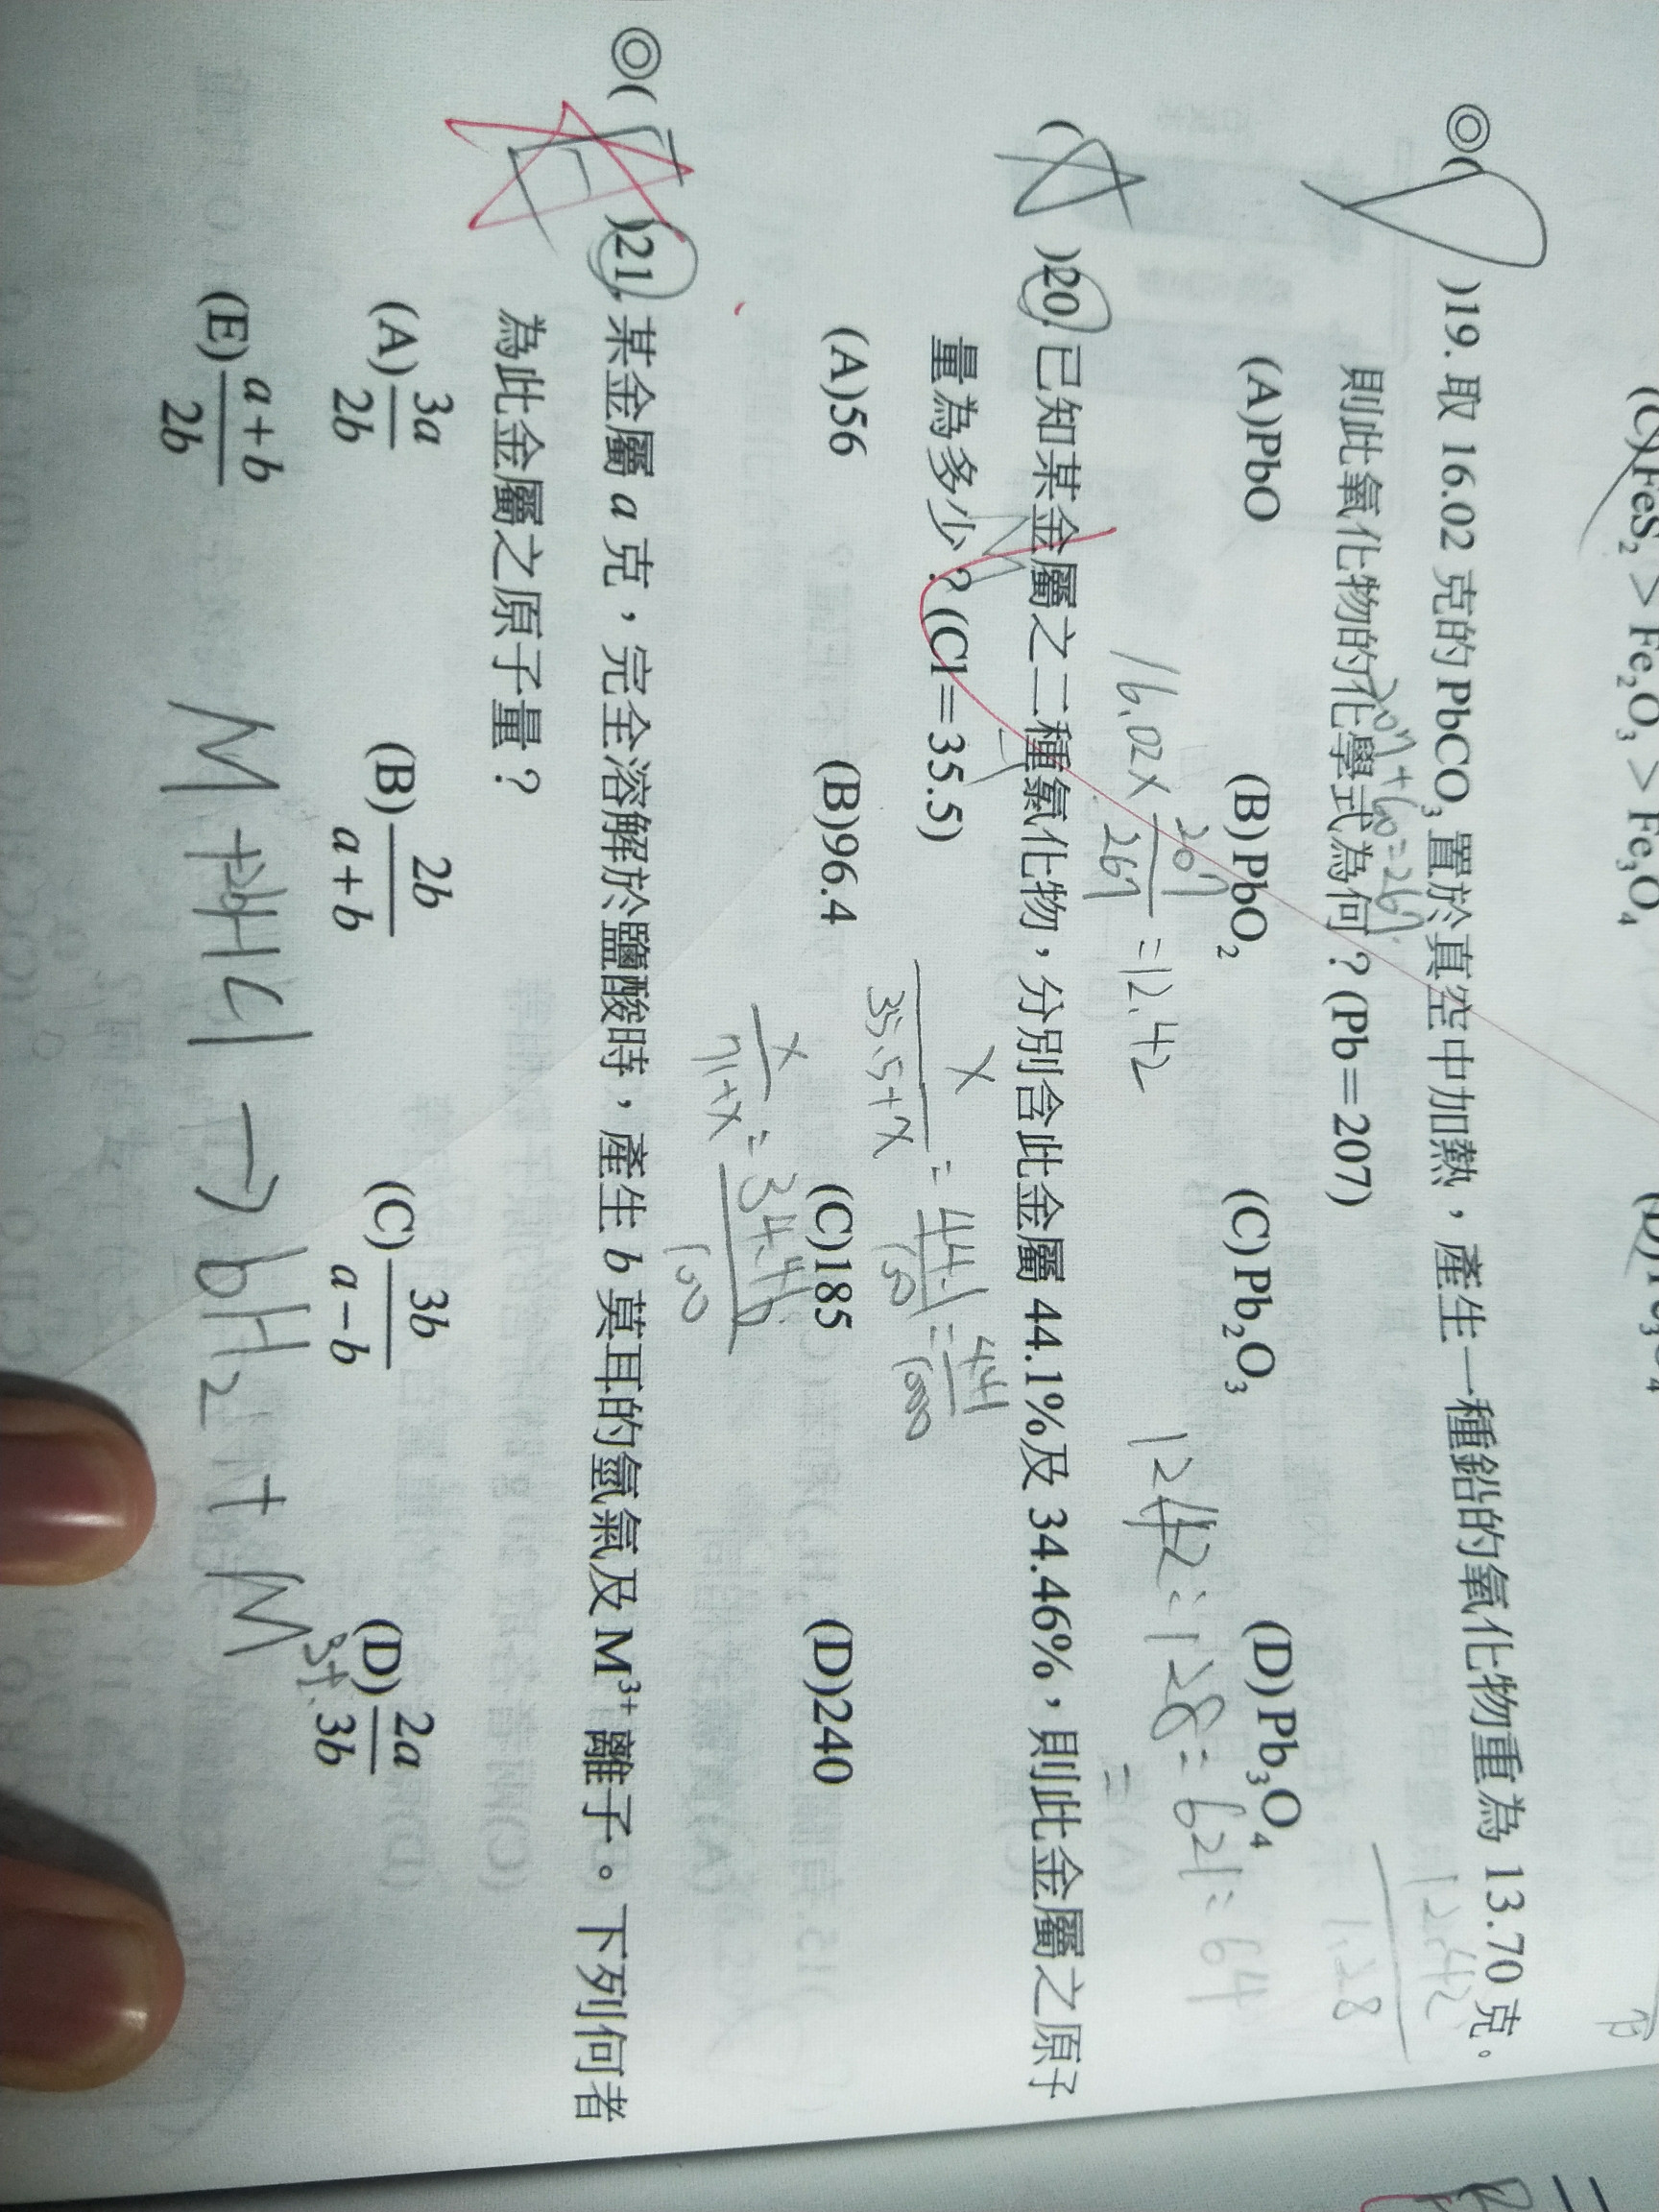 (C)FeS₂ > Fe₂O₃ > Fe₃O₄
◎( )19. 取 16.02 克的 PbCO₃ 置於真空中加熱，產生一種鉛的氧化物重為 13.70 克。
則此氧化物的化學式為何？(Pb＝207)
207+60=267
12.42
1.28
(A)PbO (B)PbO₂ (C)Pb₂O₃ (D)Pb₃O₄
16.02× 207/267 =12.42
( A )20. 已知某金屬之二種氯化物，分別含此金屬 44.1%及 34.46%，則此金屬之原子
量為多少？(Cl＝35.5)
x/35.5+x = 44.1/100 = 441/1000
(A)56 (B)96.4 (C)185 (D)240
x/71+x = 34.46/100
◎( )21. 某金屬 a 克，完全溶解於鹽酸時，產生 b 莫耳的氫氣及 M³⁺ 離子。下列何者
為此金屬之原子量？
(A) 3a/2b (B) 2b/a+b (C) 3b/a−b (D) 2a/3b
(E) a+b/2b
M + HCl → bH₂ + M³⁺